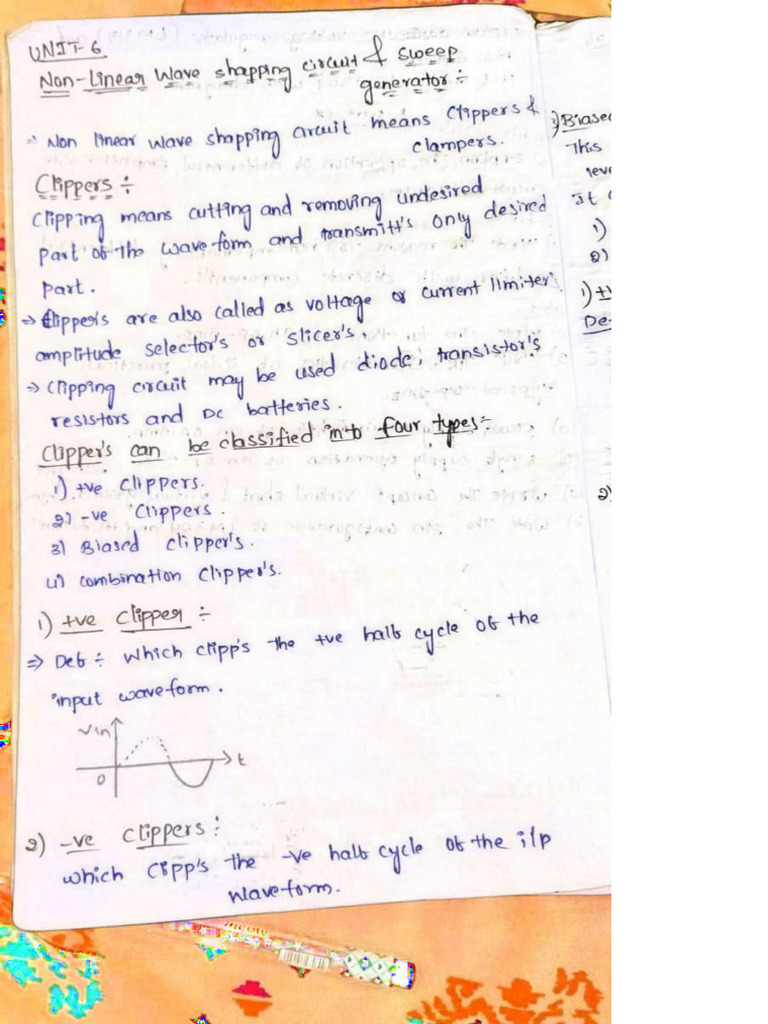 UNIT-6
Non-Linear Wave shapping circuit & sweep
generator:-
⇒ Non linear wave shapping circuit means Clippers &
clampers.
Clippers :-
Clipping means cutting and removing undesired
part of the wave form and transmitt's only desired
part.
⇒ Clipper's are also called as voltage or current limiter's
amplitude selector's or slicer's.
⇒ Clipping circuit may be used diode, transistor's
resistors and DC batteries.
Clipper's can be classified into four types:-
1) +ve Clippers.
2) -ve Clippers.
3) Biased clipper's.
4) combination Clipper's.
1) +ve Clipper :-
⇒ Def :- which clipp's the +ve half cycle of the
input waveform.
Vin
0
t
2) -ve Clippers :-
which clipp's the -ve half cycle of the i/p
waveform.
3) Biased
This
leve
It
1)
2)
1) +v
De-
2)